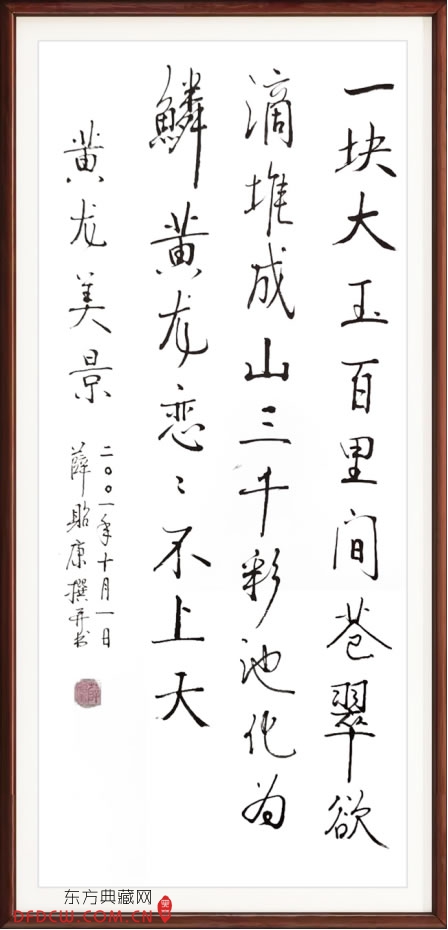 一块大玉百里间苍翠欲
滴堆成山三千彩池化为
鳞黄龙恋〻不上天
黄龙美景
二〇〇一年十月一日
薛贻康撰并书
东方典藏网
DFDCW.COM.CN